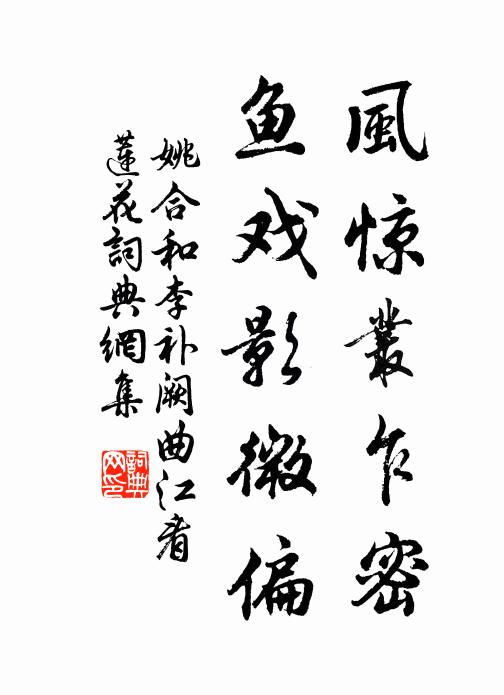 風惊叢乍密
鱼戏影微偏
姚合和李补阙曲江看
莲花詞典網集
詞典网印